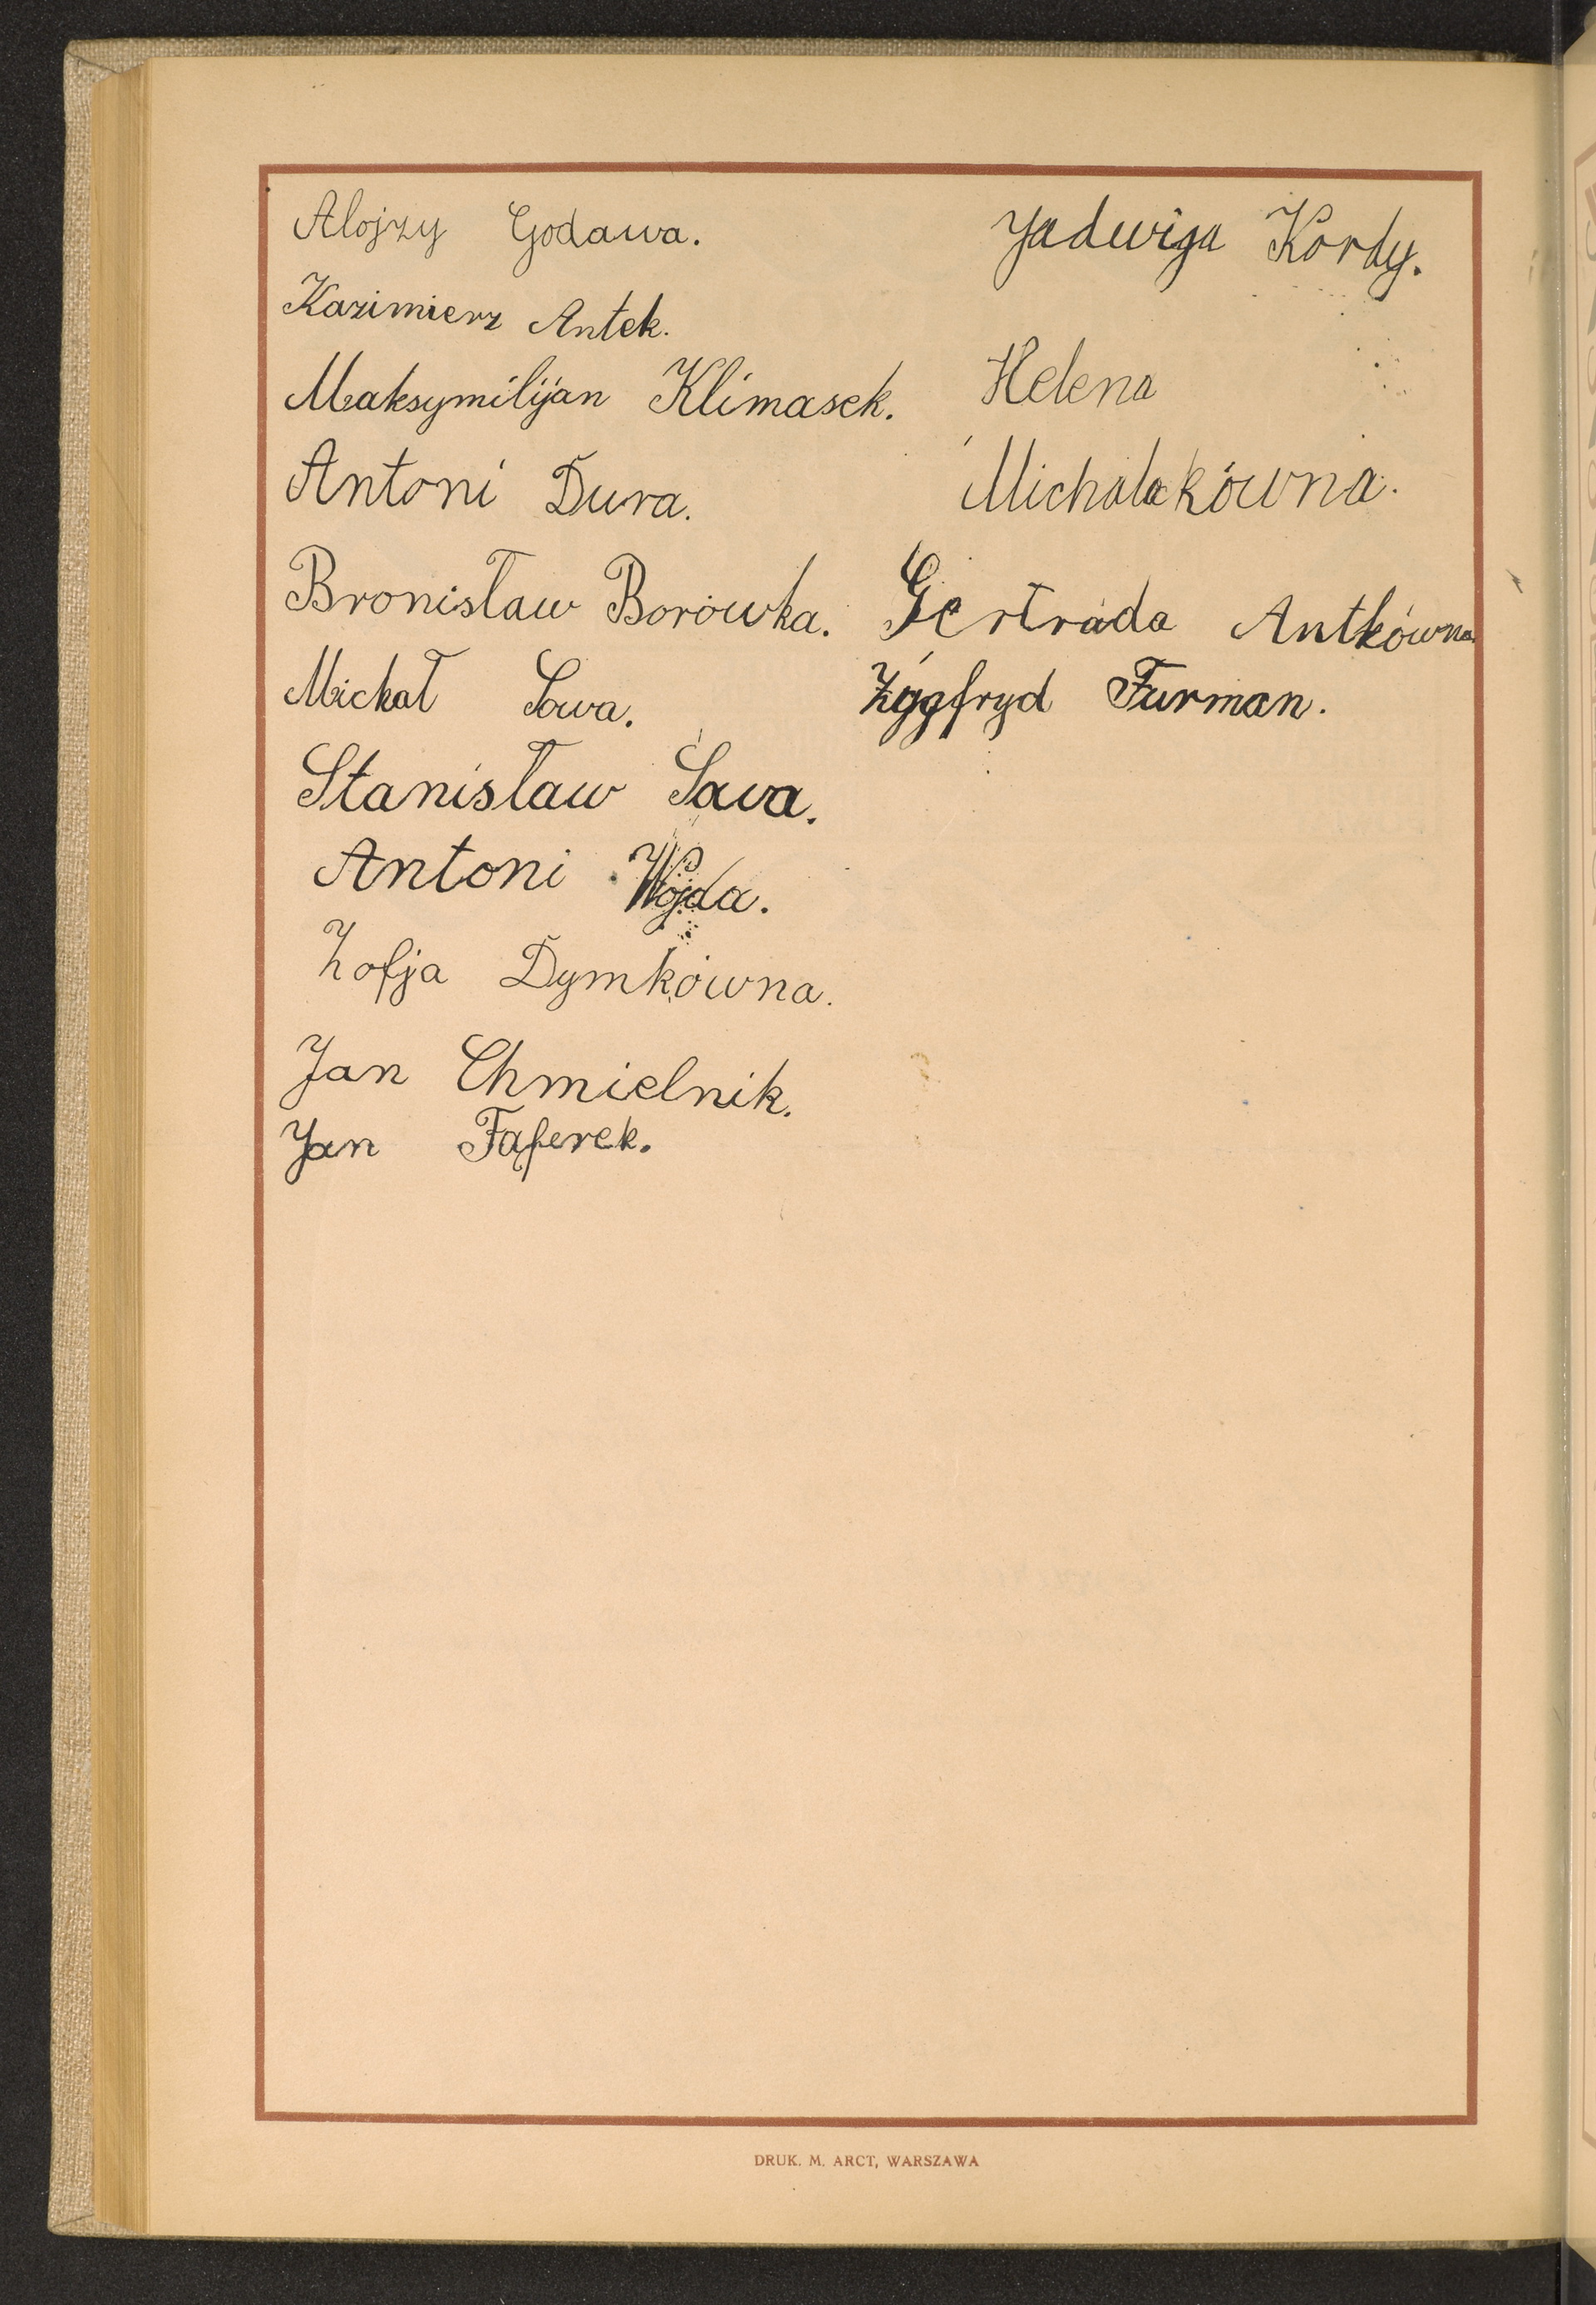 Alojzy Godawa.
Kazimierz Antek.
Maksymilijan Klimasek.
Antoni Dura.
Bronisław Borówka.
Michał Sowa.
Stanisław Sowa.
Antoni Wojda.
Zofja Dymkówna.
Jan Chmielnik.
Jan Faferek.
Jadwiga Kordy.
Helena
Michalakówna.
Gertruda Antkówna.
Zygfryd Furman.
DRUK. M. ARCT, WARSZAWA